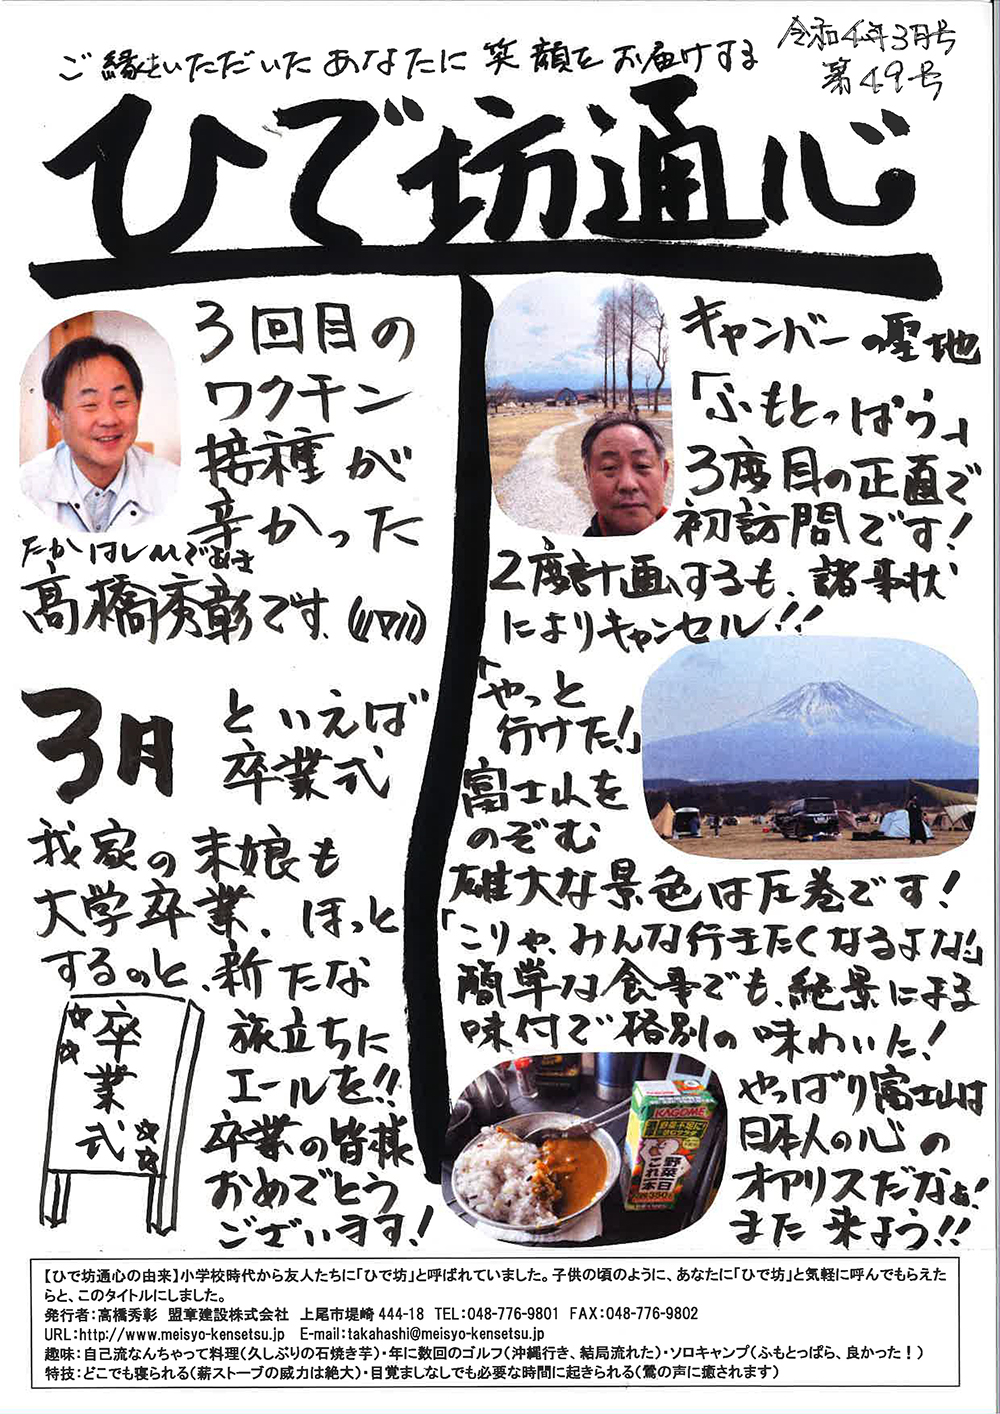 令和4年3月号
第49号
ご縁をいただいたあなたに笑顔をお届けする
ひで坊通心
3回目の
ワクチン
接種が
辛かった
たかはしひであき
髙橋秀彰です。
3月
といえば
卒業式
我家の末娘も
大学卒業、ほっと
するのと、新たな
旅立ちに
エールを!!
卒業の皆様
おめでとう
ございます!
卒業式
キャンパーの聖地
「ふもとっぱら」
3度目の正直で
初訪問です!
2度計画するも、諸事状
によりキャンセル!!
「やっと
行けた!」
富士山を
のぞむ
雄大な景色は圧巻です!
「こりゃ、みんな行きたくなるよな!」
簡単な食事でも、絶景による
味付で格別の味わいた!
KAGOME
野菜
これ一本
やっぱり富士山は
日本人の心の
オアリスだなぁ!
また来よう!!
【ひで坊通心の由来】小学校時代から友人たちに「ひで坊」と呼ばれていました。子供の頃のように、あなたに「ひで坊」と気軽に呼んでもらえた
らと、このタイトルにしました。
発行者:髙橋秀彰 盟章建設株式会社 上尾市堤崎444-18 TEL:048-776-9801 FAX:048-776-9802
URL:http://www.meisyo-kensetsu.jp E-mail:takahashi@meisyo-kensetsu.jp
趣味:自己流なんちゃって料理(久しぶりの石焼き芋)・年に数回のゴルフ(沖縄行き、結局流れた)・ソロキャンプ(ふもとっぱら、良かった!)
特技:どこでも寝られる(薪ストーブの威力は絶大)・目覚ましなしでも必要な時間に起きられる(鶯の声に癒されます)